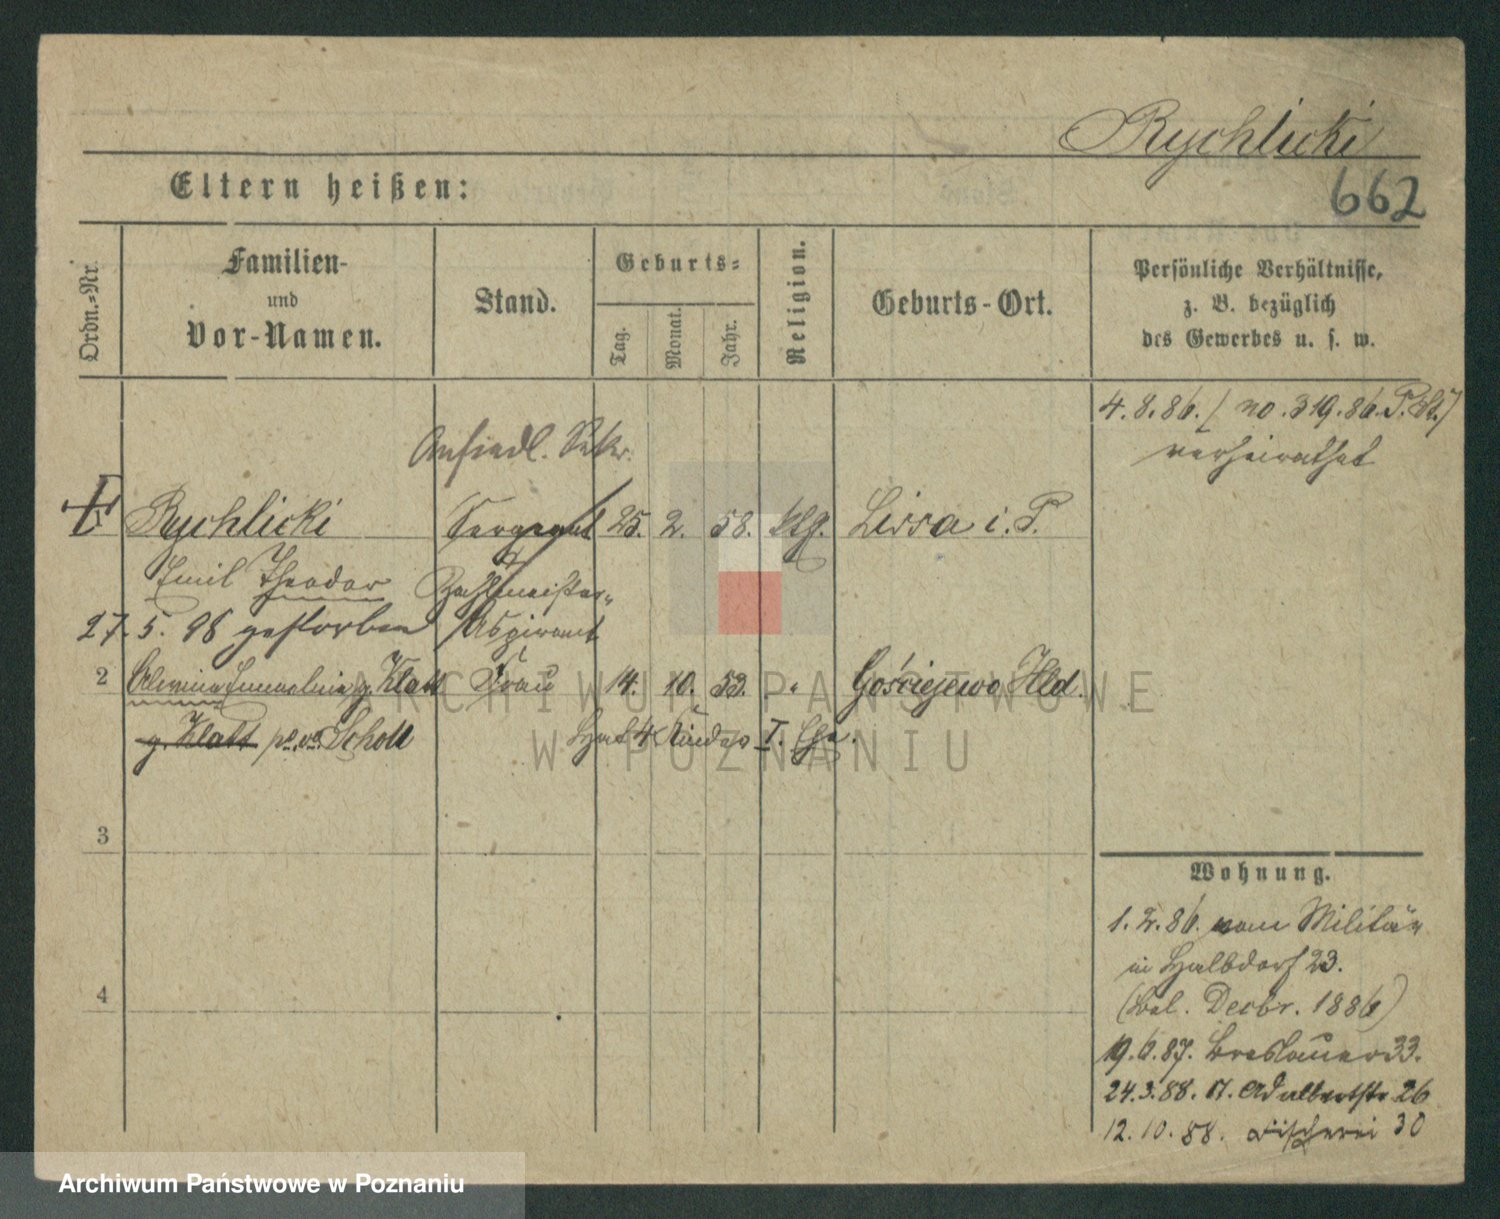 Rychlicki
662
Eltern heißen:
Ordn.-Nr.
Familien-
und
Vor-Namen.
Stand.
Geburts-
Tag.
Monat.
Jahr.
Religion.
Geburts-Ort.
Persönliche Verhältnisse,
z. B. bezüglich
des Gewerbes u. s. w.
4.8.86. / no. 319.86. P. St. /
verheirathet
Ansiedl. Sekr.
Rychlicki Sergeant 25. 2. 58. Klg. Lissa i. P.
Emil Theodor Zahlmeister-
27. 5. 98 gestorben Aspirant
2 Emmeline g. Klatt Frau 14. 10. 53. " Gościejewo Hld.
g. Klatt pr. vo. Scholl Hat 4 Kinder I. Ehe.
3
4
Wohnung.
1.2.86. vom Militär
in Halbdorf 23.
(Bel. Decbr. 1886)
19.6.87. Breslauer 33.
24.3.88. St. Adalbertstr 26
12.10.88. Fischerei 30
ARCHIWUM PAŃSTWOWE
W POZNANIU
Archiwum Państwowe w Poznaniu